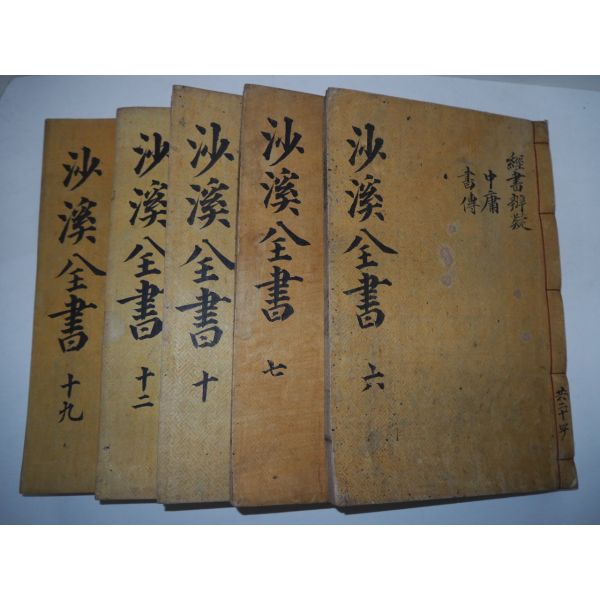 經書辨疑
中庸
書傳
沙溪全書 六
沙溪全書 七
沙溪全書 十
沙溪全書 十二
沙溪全書 十九